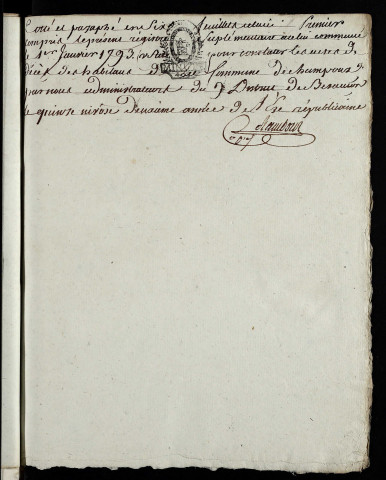 Cotté et paraphé en Six feuillets celui ci Premier
compris le présent registre supplémentaire à celui commencé
le 1er Janvier 1793. pour constater les actes de
décès des habitans de la Commune de champoux
par nous administrateurs du District de Besançon
le quinze nivose deuxieme année de l'Ere républicaine